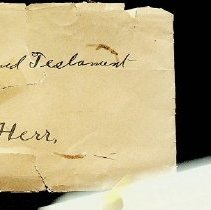 and Testament
Herr,